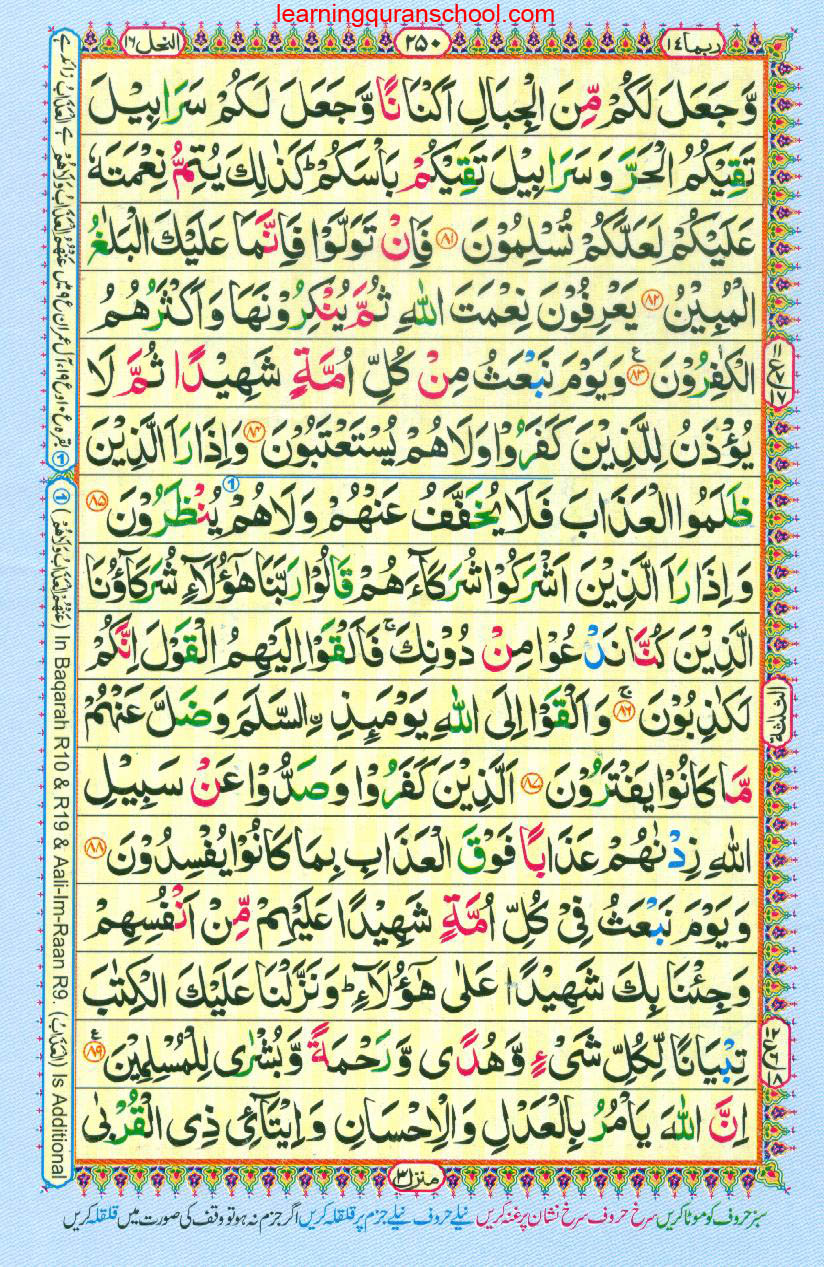 learningquranschool.com
ربما ١٤
٢٥٠
النحل ١٦
وَّجَعَلَ لَكُمْ مِّنَ الْجِبَالِ اَكْنَانًا وَّجَعَلَ لَكُمْ سَرَابِيْلَ
تَقِيْكُمُ الْحَرَّ وَسَرَابِيْلَ تَقِيْكُمْ بَاْسَكُمْ ؕ كَذٰلِكَ يُتِمُّ نِعْمَتَهٗ
عَلَيْكُمْ لَعَلَّكُمْ تُسْلِمُوْنَ ٨١ فَاِنْ تَوَلَّوْا فَاِنَّمَا عَلَيْكَ الْبَلٰغُ
الْمُبِيْنُ ٨٢ يَعْرِفُوْنَ نِعْمَتَ اللّٰهِ ثُمَّ يُنْكِرُوْنَهَا وَاَكْثَرُهُمُ
الْكٰفِرُوْنَ ٨٣ وَيَوْمَ نَبْعَثُ مِنْ كُلِّ اُمَّةٍ شَهِيْدًا ثُمَّ لَا
يُؤْذَنُ لِلَّذِيْنَ كَفَرُوْا وَلَا هُمْ يُسْتَعْتَبُوْنَ ٨٤ وَاِذَا رَاَ الَّذِيْنَ
ظَلَمُوا الْعَذَابَ فَلَا يُخَفَّفُ عَنْهُمْ وَلَا هُمْ يُنْظَرُوْنَ ٨٥
وَاِذَا رَاَ الَّذِيْنَ اَشْرَكُوْا شُرَكَآءَهُمْ قَالُوْا رَبَّنَا هٰٓؤُلَآءِ شُرَكَآؤُنَا
الَّذِيْنَ كُنَّا نَدْعُوْا مِنْ دُوْنِكَ ۚ فَاَلْقَوْا اِلَيْهِمُ الْقَوْلَ اِنَّكُمْ
لَكٰذِبُوْنَ ٨٦ وَاَلْقَوْا اِلَى اللّٰهِ يَوْمَىِٕذِ ِۨالسَّلَمَ وَضَلَّ عَنْهُمْ
مَّا كَانُوْا يَفْتَرُوْنَ ٨٧ اَلَّذِيْنَ كَفَرُوْا وَصَدُّوْا عَنْ سَبِيْلِ
اللّٰهِ زِدْنٰهُمْ عَذَابًا فَوْقَ الْعَذَابِ بِمَا كَانُوْا يُفْسِدُوْنَ ٨٨
وَيَوْمَ نَبْعَثُ فِيْ كُلِّ اُمَّةٍ شَهِيْدًا عَلَيْهِمْ مِّنْ اَنْفُسِهِمْ
وَجِئْنَا بِكَ شَهِيْدًا عَلٰى هٰٓؤُلَآءِ ؕ وَنَزَّلْنَا عَلَيْكَ الْكِتٰبَ
تِبْيَانًا لِّكُلِّ شَيْءٍ وَّهُدًى وَّرَحْمَةً وَّبُشْرٰى لِلْمُسْلِمِيْنَ ٨٩
اِنَّ اللّٰهَ يَاْمُرُ بِالْعَدْلِ وَالْاِحْسَانِ وَاِيْتَآئِ ذِى الْقُرْبٰى
الثلثة
منزل ٣
(عَنْهُمُ الْعَذَابُ وَلَاهُمْ) In Baqarah R10 & R19 & Aali-Im-Raan R9. (الْعَذَابُ) Is Additional
سبز حروف کو موٹا کریں سرخ حروف سرخ نشان پر غنہ کریں نیلے حروف نیلے جزم پر قلقلہ کریں اگر جزم نہ ہو تو وقف کی صورت میں قلقلہ کریں